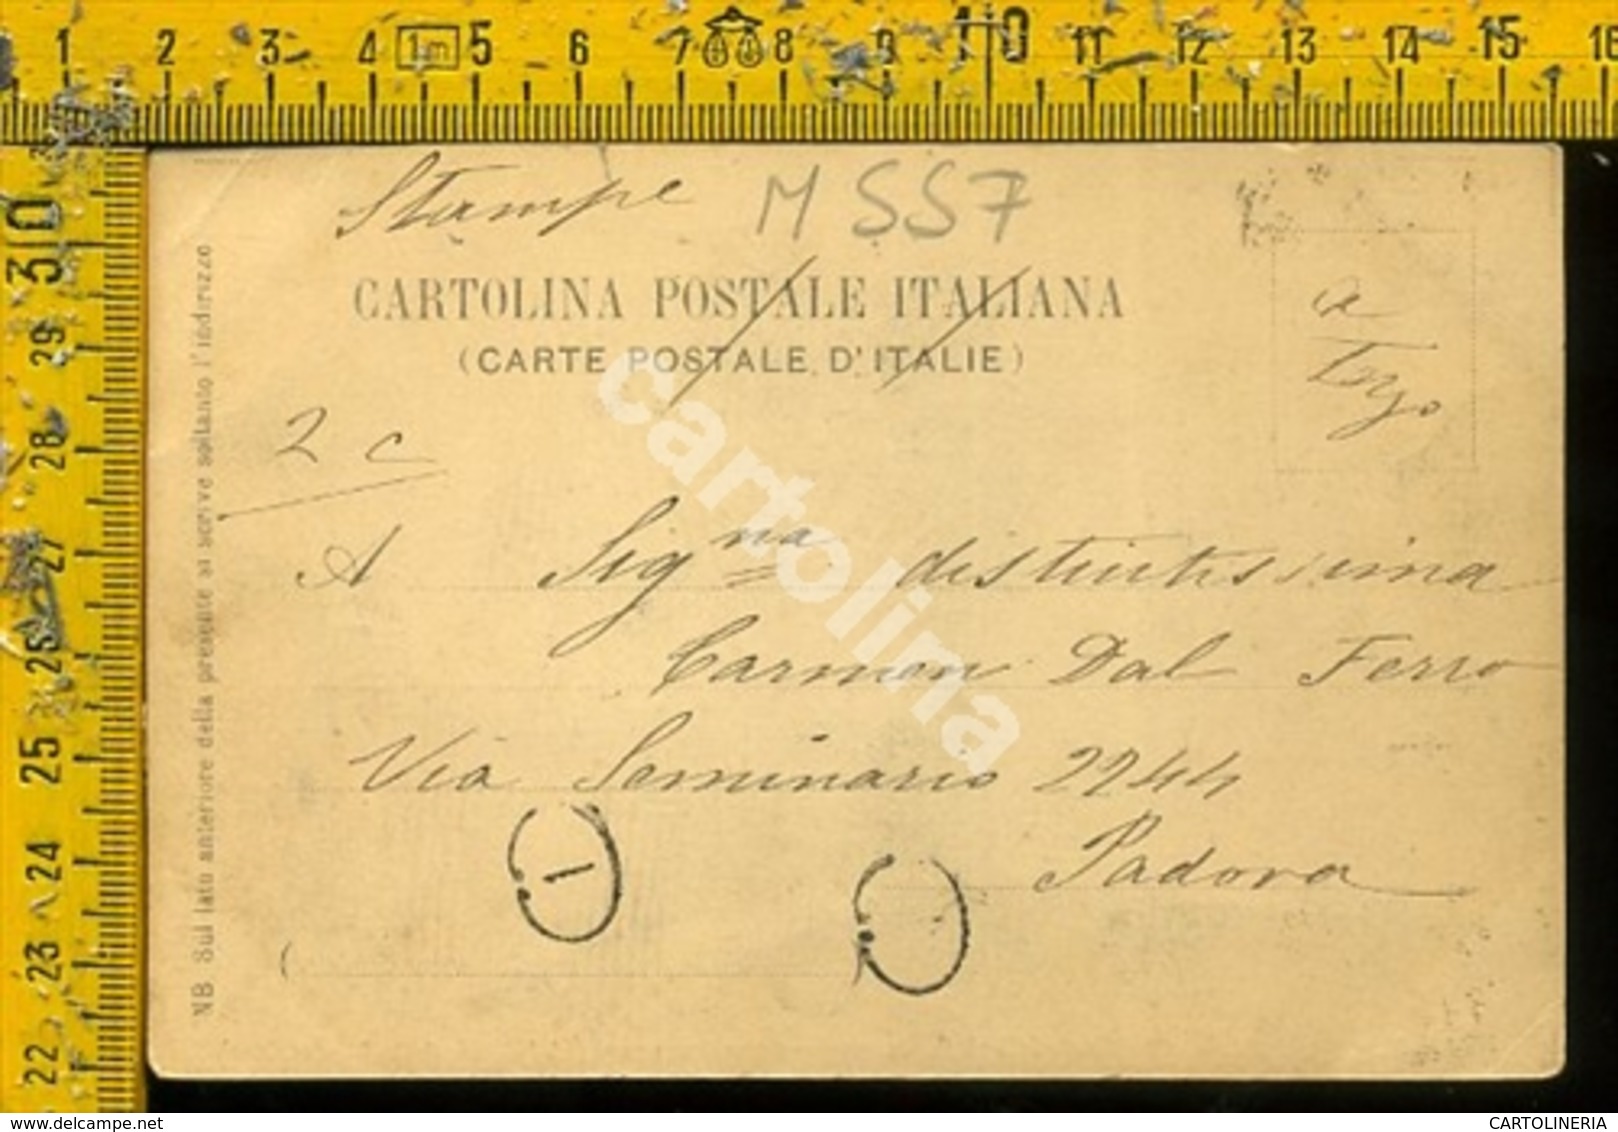 1 2 3 4 1m 5 6 7 8 9 10 11 12 13 14 15 16
30 29 28 27 26 25 24 23 22
Stampe M 557
CARTOLINA POSTALE ITALIANA
(CARTE POSTALE D'ITALIE)
a
tergo
2 c
A Sig na distintissima
Carmen Dal Ferro
Via Seminario 2244
Padova
NB Sul lato anteriore della presente si scrive soltanto l'indirizzo
cartolina
delcampe.net
CARTOLINERIA